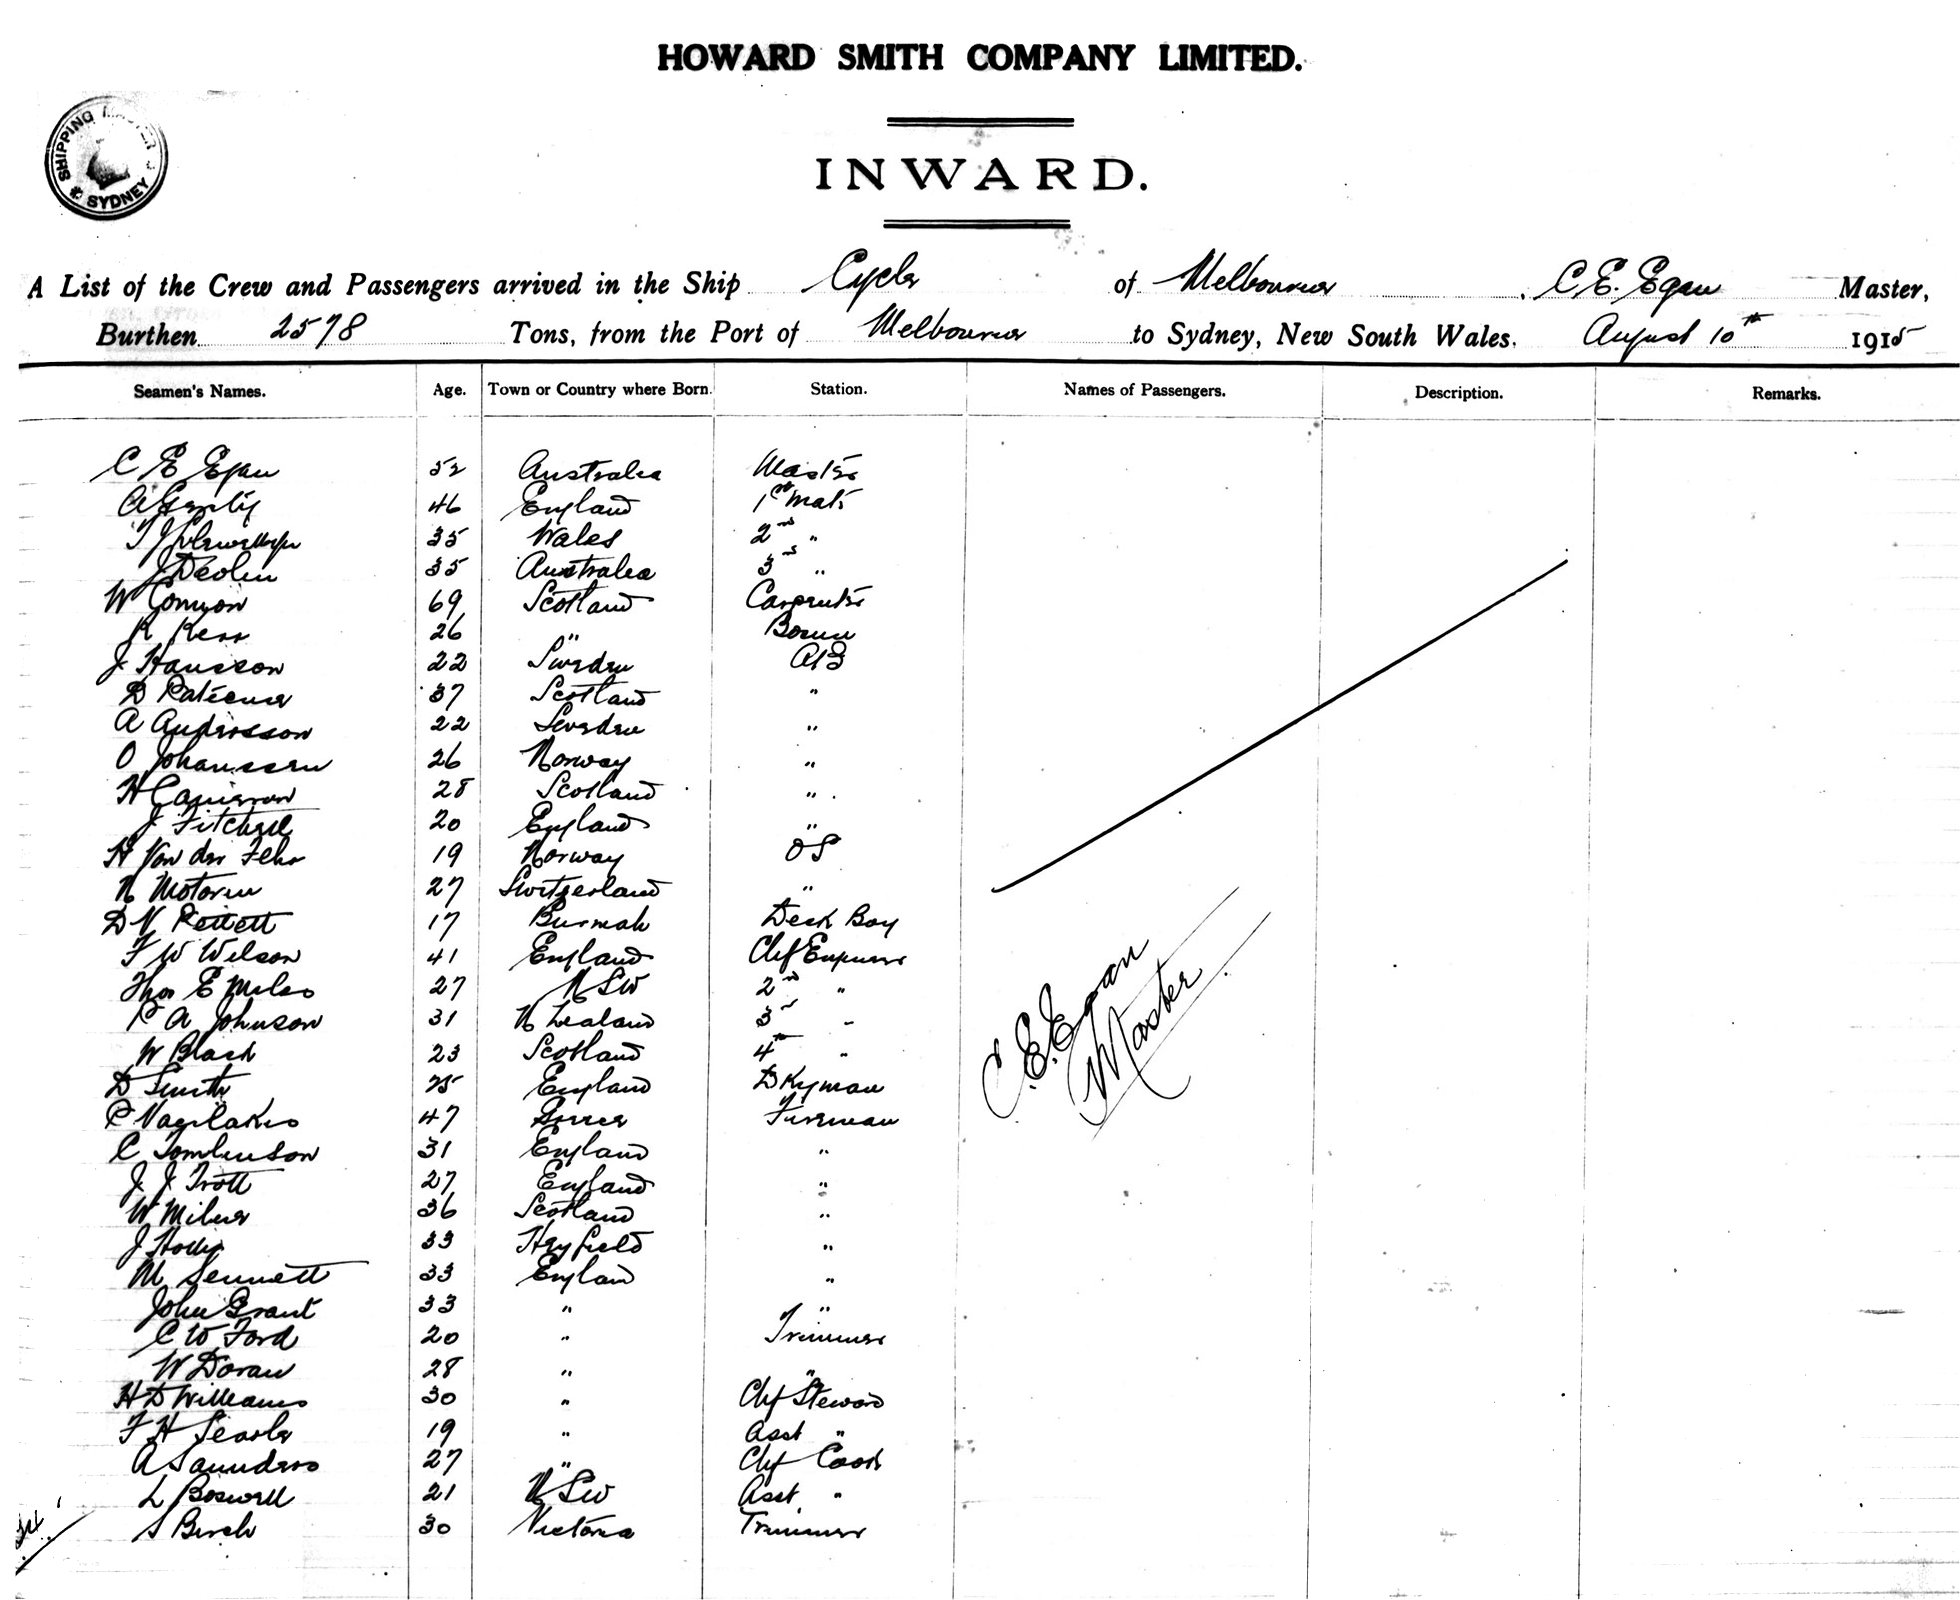 HOWARD SMITH COMPANY LIMITED.
SHIPPING MASTER SYDNEY
INWARD.
A List of the Crew and Passengers arrived in the Ship Cycle of Melbourne, C. E. Egan Master,
Burthen 2578 Tons, from the Port of Melbourne to Sydney, New South Wales. August 10th 1915
Seamen's Names. Age. Town or Country where Born. Station. Names of Passengers. Description. Remarks.
C E Egan 52 Australia Master
A 46 England 1st Mate
T J Llewellyn 35 Wales 2nd "
J Devlin 35 Australia 3rd "
W 69 Scotland Carpenter
R Kerr 26 " Bosun
J Hansson 22 Sweden AB
D 37 Scotland "
A Andersson 22 Sweden "
O Johanssen 26 Norway "
H Cameron 28 Scotland "
J Titchell 20 England "
H Van der Fehr 19 Norway OS
N Motorin 27 Switzerland "
D V Pettett 17 Burmah Deck Boy
F W Wilson 41 England Chf Engineer
Thos E Miles 27 NSW 2nd "
P A Johnson 31 N Zealand 3rd "
W Black 23 Scotland 4th "
D Smith 25 England Dkyman
P Vagilakis 47 Greece Fireman
C Tomlinson 31 England "
J J Trott 27 England "
W Milne 36 Scotland "
J 33 Heyfield "
M Sennett 33 England "
John Grant 33 " "
C W Ford 20 " Trimmer
W Doran 28 " "
H D Williams 30 " Chf Steward
F H Searle 19 " Asst "
A Saunders 27 " Chf Cook
L Boswell 21 NSW Asst "
S Birch 30 Victoria Trimmer
34
C. E. Egan
Master